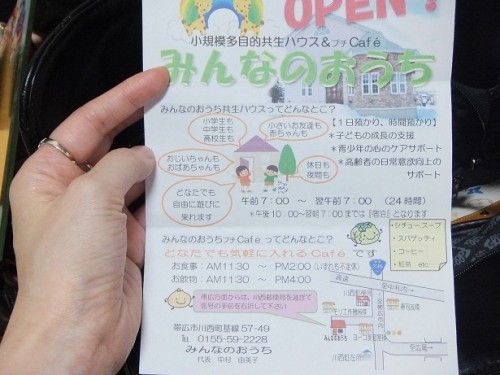 OPEN!
小規模多目的共生ハウス＆プチCafé
みんなのおうち
みんなのおうち共生ハウスってどんなとこ？
小学生も
中学生も
高校生も
小さいお友達も
赤ちゃんも
【1日預かり、時間預かり】
*子どもの成長の支援
*青少年の心のケアサポート
*高齢者の日常意欲向上の
サポート
おじいちゃんも
おばあちゃんも
休日も
夜間も
どなたでも
自由に遊びに
来れます
午前7：00 ～ 翌午前7：00 （24時間）
*午後10：00～翌朝7：00までは『宿泊』となります
みんなのおうちプチCafé ってどんなとこ？
どなたでも気軽に入れるCafé です
お食事：AM11:30 ～ PM2:00
お飲物：AM11:30 ～ PM4:00
*シチュー・スープ
*スパゲッティ
*コーヒー
*紅茶 etc…
帯広方面からは、川西郵便局を過ぎて
帯広市川西町基線57-49
℡ 0155-59-2228
みんなのおうち
代表 中村